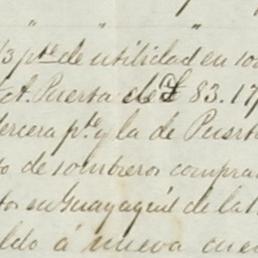 " "
/3 pte de utilidad en 100
ct. Puerta de £ 83.17
tercera pte y la de Puert
to de sombreros compra
tos en Guayaquil de la
ldo á nueva cuen